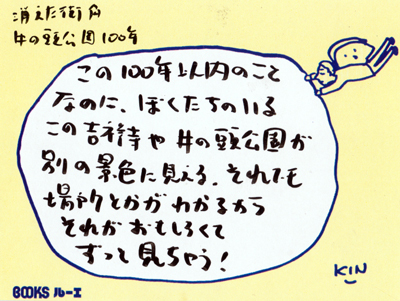 消えた街角
井の頭公園100年
この100年以内のこと
なのに、ぼくたちのいる
この吉祥寺や井の頭公園が
別の景色に見える。それでも
場所とかがわかるから
それがおもしろくて
ずっと見ちゃう!
KIN
BOOKS ルーエ